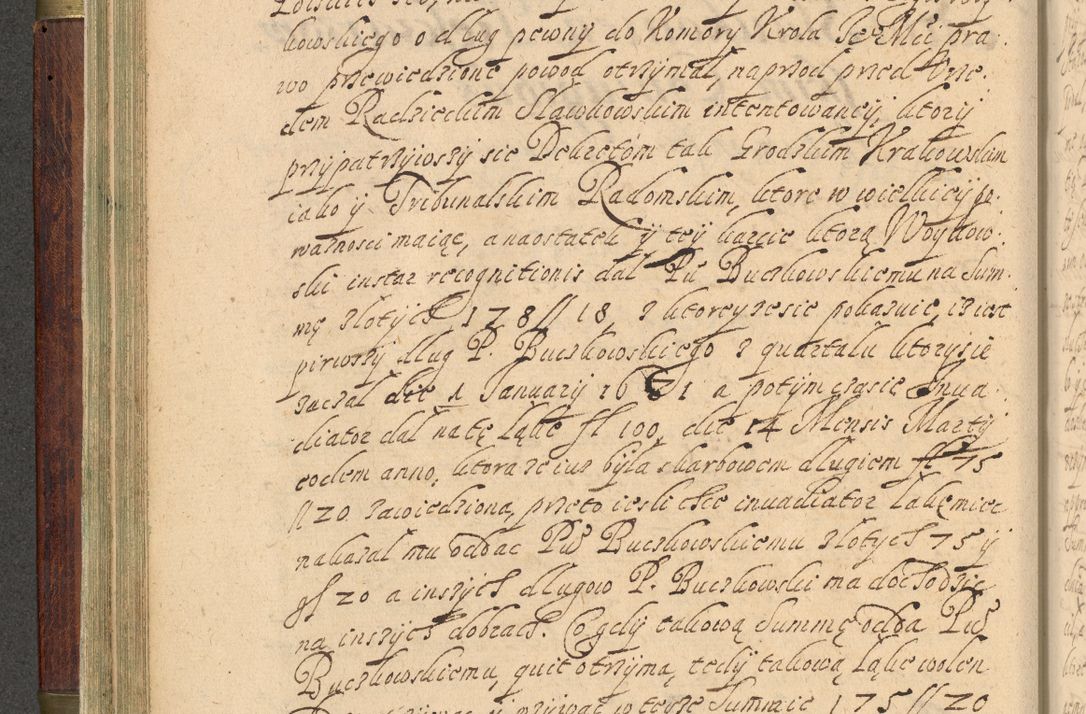 kowskiego o dług pewny do Komory Krola Je Mći pra:
wo przewiedzione powod otrzymał, naprzod przed Vrzę:
dem Radzieckim Sławkowskim intentowaney, ktory
przypatrzywszy się Dekretom tak Grodzkim Krakowskim
iako y Tribunalskim Radomskim, ktore w wielkiey po:
waznosci maiąc, a naostatek y tey karcie ktorą Woykow:
ski instar recognitionis dał Pu Buczkowskiemu na Sum:
mę złotych 178 // 18, z ktorey ze się pokazuie, iz iest
pirwszy dług P. Buczkowskiego z quartału ktory się
zaczął die 1 January 1671 a potym czasie inua:
diator dał na tę Łąkę fl 100, die 14 Mensis Martij
eodem anno, ktora ze iuz była skarbowem długiem fl 75
fl 20 zawiedziona, przeto iesli chce inuadiator Łąkę miec
nakazał mu oddac Pu Buczkowskiemu złotych 75 y
gl 20 a inszych długow P. Buczkowski ma dochodzic
na inszych dobrach. Co gdy takową Summę odda Pu
Buczkowskiemu, quit otrzyma, tedy takową Łąkę wolen
Summie 175 // 20